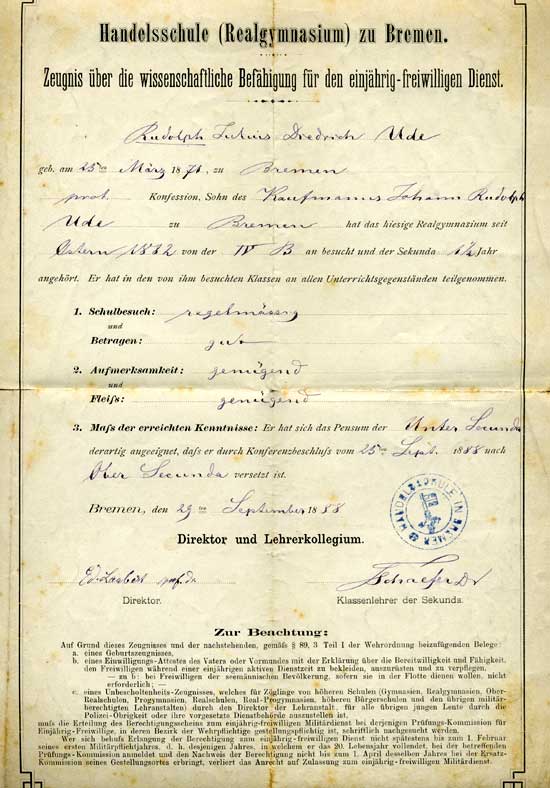 Handelsschule (Realgymnasium) zu Bremen.
Zeugnis über die wissenschaftliche Befähigung für den einjährig-freiwilligen Dienst.
Rudolph Julius Diedrich Ude
geb. am 25ten März 1871, zu Bremen
prot. Konfession, Sohn des Kaufmanns Johann Rudolph
Ude zu Bremen hat das hiesige Realgymnasium seit
Ostern 1882 von der IV B an besucht und der Sekunda 1½ Jahr
angehört. Er hat in den von ihm besuchten Klassen an allen Unterrichtsgegenständen teilgenommen.
1. Schulbesuch: regelmässig
und
Betragen: gut
2. Aufmerksamkeit: genügend
und
Fleifs: genügend
3. Mafs der erreichten Kenntnisse: Er hat sich das Pensum der Unter Secunda
derartig angeeignet, dafs er durch Konferenzbeschlufs vom 25ten Sept. 1888 nach
Ober Secunda versetzt ist.
Bremen, den 29ten September 1888
HANDELSSCHULE IN BREMEN
Direktor und Lehrerkollegium.
Direktor.
Klassenlehrer der Sekunda.
Zur Beachtung:
Auf Grund dieses Zeugnisses und der nachstehenden, gemäfs § 89, 3 Teil I der Wehrordnung beizufügenden Belege:
a. eines Geburtszeugnisses,
b. eines Einwilligungs-Attestes des Vaters oder Vormundes mit der Erklärung über die Bereitwilligkeit und Fähigkeit,
den Freiwilligen während einer einjährigen aktiven Dienstzeit zu bekleiden, auszurüsten und zu verpflegen,
— zu b: bei Freiwilligen der seemännischen Bevölkerung, sofern sie in der Flotte dienen wollen, nicht
erforderlich; —
c. eines Unbescholtenheits-Zeugnisses, welches für Zöglinge von höheren Schulen (Gymnasien, Realgymnasien, Ober-
Realschulen, Progymnasien, Realschulen, Real-Progymnasien, höheren Bürgerschulen und den übrigen militär-
berechtigten Lehranstalten) durch den Direktor der Lehranstalt, für alle übrigen jungen Leute durch die
Polizei-Obrigkeit oder ihre vorgesetzte Dienstbehörde auszustellen ist,
mufs die Erteilung des Berechtigungsscheins zum einjährig-freiwilligen Militärdienst bei derjenigen Prüfungs-Kommission für
Einjährig-Freiwillige, in deren Bezirk der Wehrpflichtige gestellungspflichtig ist, schriftlich nachgesucht werden.
Wer sich behufs Erlangung der Berechtigung zum einjährig-freiwilligen Dienst nicht spätestens bis zum 1. Februar
seines ersten Militärpflichtjahrs, d. h. desjenigen Jahres, in welchem er das 20. Lebensjahr vollendet, bei der betreffenden
Prüfungs-Kommission anmeldet und den Nachweis der Berechtigung nicht bis zum 1. April desselben Jahres bei der Ersatz-
Kommission seines Gestellungsortes erbringt, verliert das Anrecht auf Zulassung zum einjährig-freiwilligen Militärdienst.